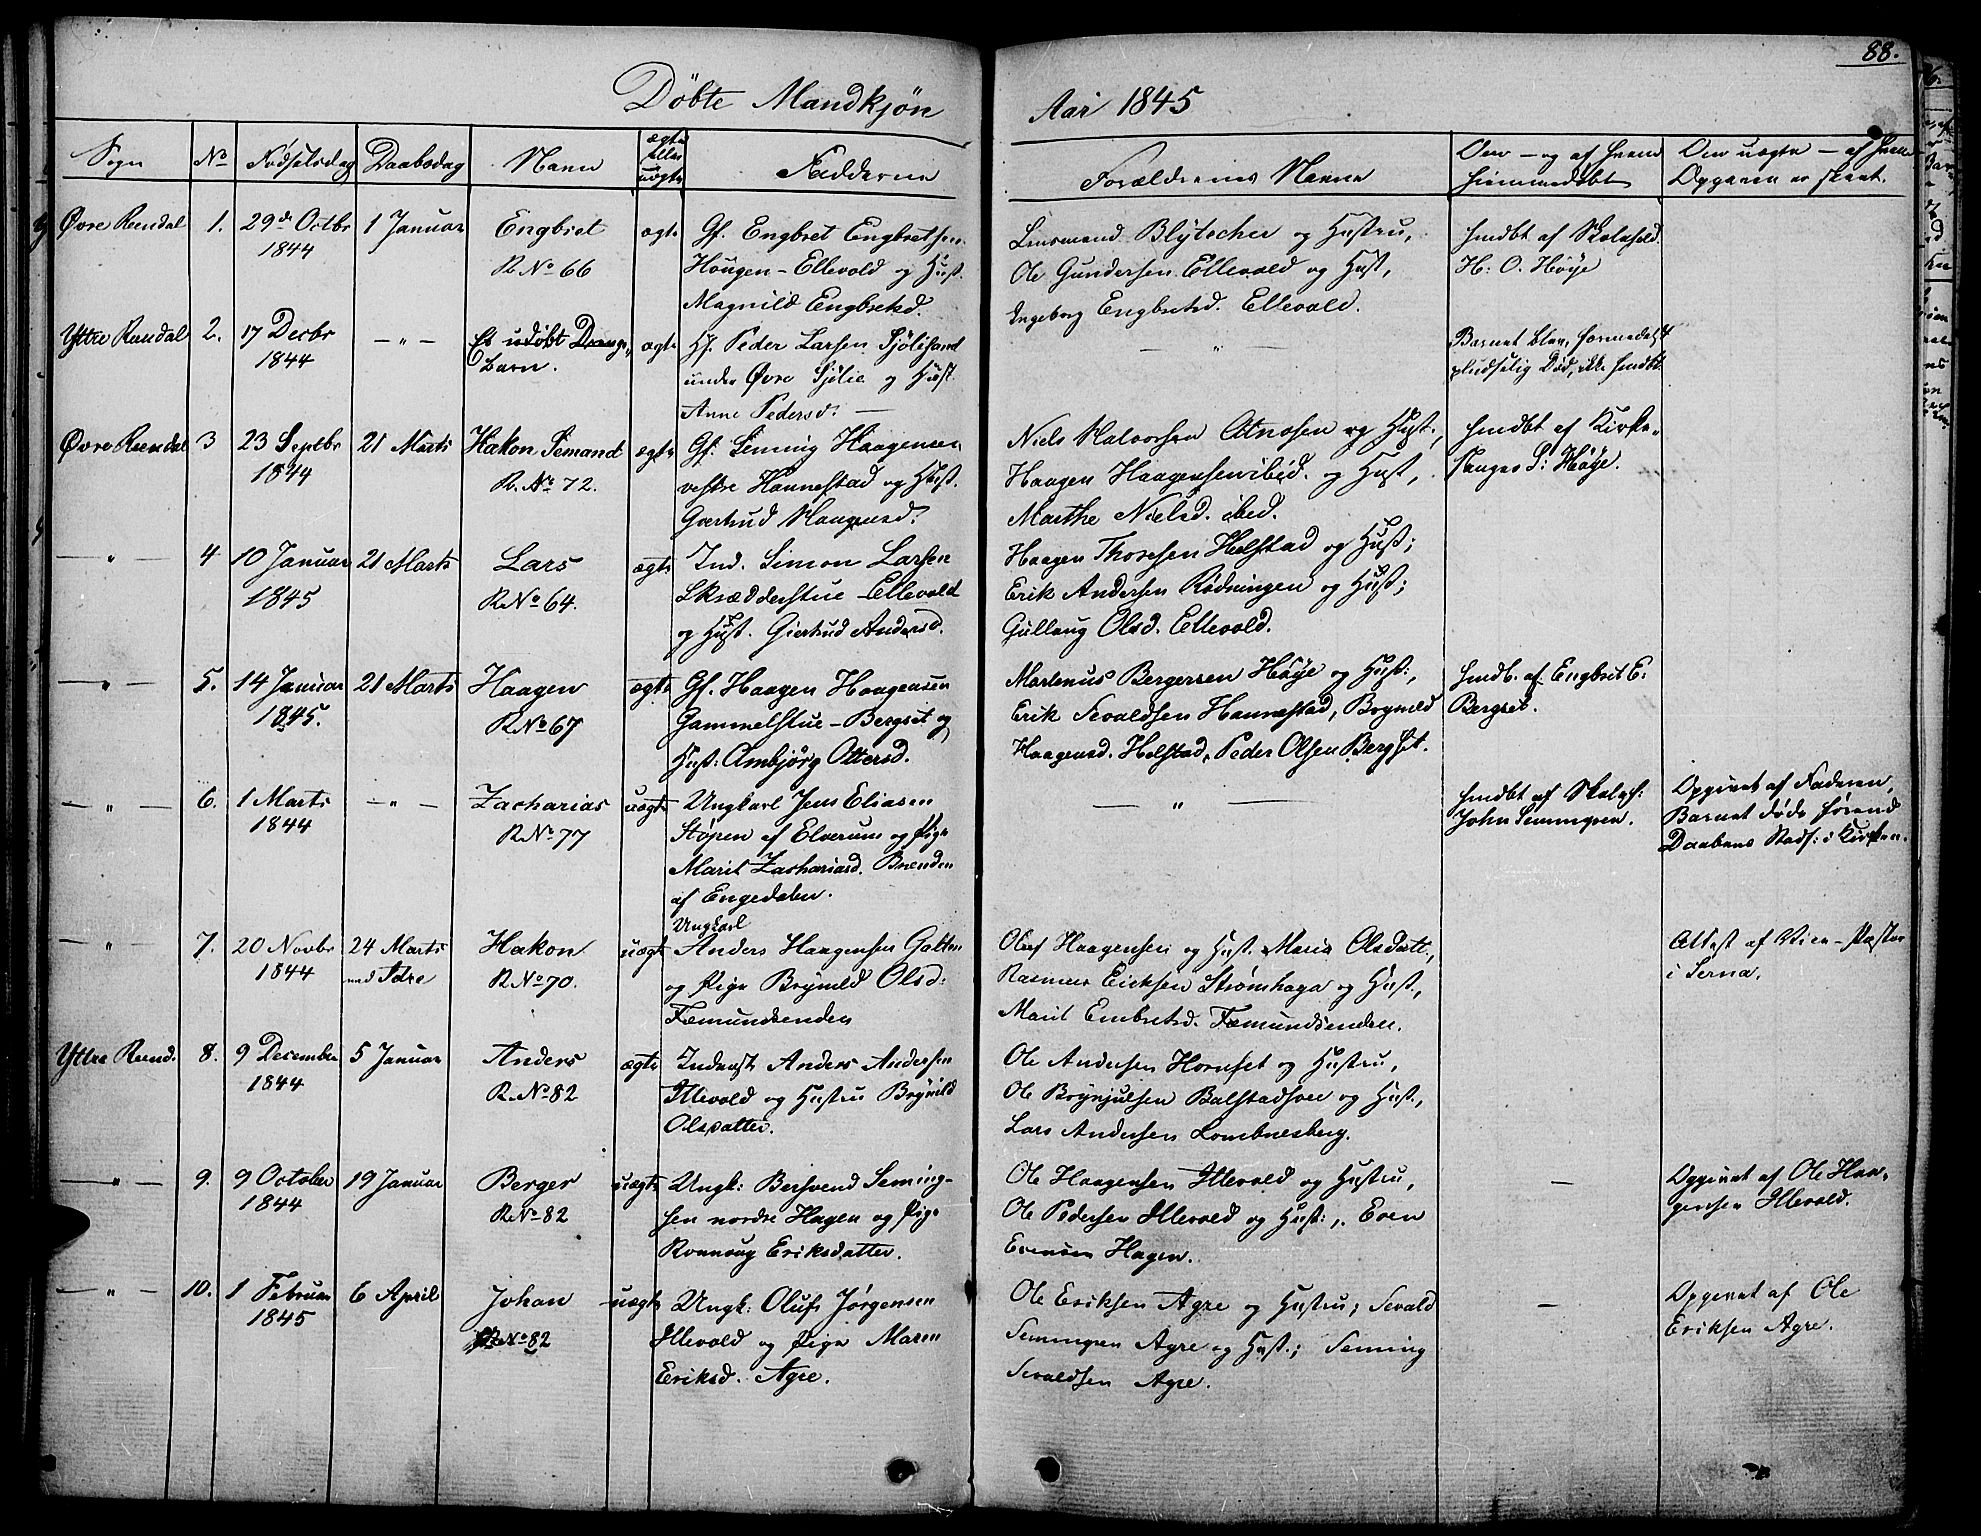 88.
Döbte Mandkjön
Aar 1845
Sogn
No
Födselsdag
Daabsdag
Navn
ægte
eller
uægte
Fadderne
Forældrenes Navne
Om – og af hvem
hjemmedöbt
Om uægte – af hvem
Opgaven er skeet.
Øvre Rendal 1. 29de Octbr 1 Januar Engbret ægte Gf. Engbret Engbretsen
1844 R No 66 Hougen – Ellevold og Hust.
Magnild Engbretsd.
Lensmand Blytscher og Hustru,
Ole Gundersen Ellevold og Hust,
Ingeborg Engbretsd. Ellevold.
hmdbt af Skolehold.
H: O. Høye
Yttre Rendal 2. 17 Decbr — " — Et udöbt Drenge- ægte Hf. Peder Larsen Sjölisand
1844 Barn. under Øvre Sjölie og Hust.
Anne Pedersd. —
— " —
Barnet blev, formedelst
pludselig Död, ikke hmdbt.
Øvre Rendal 3 23 Septbr 21 Marts Hakon Semand ægte Gf. Semming Haagensen
1844 R. No 72. vestre Hannestad og Hust.
Gjertrud Haagensd.
Niels Halvorsen Atnosen og Hust.,
Haagen Haagensen ibid. og Hust,
Marthe Nielsd. ibed.
hmdbt af Kirke-
sanger S: Høye.
— " — 4 10 Januar 21 Marts Lars ægte Ind. Simon Larsen
1845 R No 64. Skrædderstue – Ellevold
og Hust. Giertrud Andersd.
Haagen Thoresen Helstad og Hust;
Erik Andersen Rödningen og Hust;
Gullaug Olsd. Ellevold.
— " — 5. 14 Januar 21 Marts Haagen ægte Gf. Haagen Haagensen
1845. R No 67 Gammelstue – Bergset og
Hust: Ambjörg Ottersd.
Martenus Bergersen Høye og Hust:,
Erik Sevaldsen Hannestad, Brynild
Haagensd. Helstad, Peder Olsen Bergset.
hmdb. af Engbret E.
Bergset.
— " — 6. 1 Marts — " — Zacharias uægte Ungkarl Jens Eliasen
1844 R No 77 Støpen af Elverum og Pige
Marit Zachariasd. Brenden
af Engedalen.
— " —
hmdbt af Skoleh:
John Semmingsen.
Opgivet af Faderen,
Barnet døde førend
Daabens Stadf: i Kirken.
— " — 7. 20 Novbr 24 Marts Hakon uægte Ungkarl
Anders Haagensen Galten
1844 ved Idre R No 70. og Pige Brynild Olsd:
Fæmundsenden
Oluf Haagensen og Hust. Maria Olsdatt.,
Rasmus Ericksen Strømhaga og Hust,
Marit Embretsd. Fæmundsenden.
Attest af Vice-Pastor
i Serna.
Yttre Rend. 8. 9 December 5 Januar Anders ægte Inderst Anders Andersen
1844 R. No 82 Illevold og Hustru Brynild
Olsdatter.
Ole Andersen Hornset og Hustru,
Ole Brynjulsen Balstadhoee og Hust.,
Lars Andersen Lombnesberg.
— " — 9. 9 October 19 Januar Berger uægte Ungk: Bersvend Seming-
1844 R No 82 sen nordre Hagen og Pige
Ronnaug Eriksdatter.
Ole Haagensen Illevold og Hustru,
Ole Pedersen Illevold og Hust:, Even
Evensen Hagen.
—
Opgivet af Ole Haa-
gensen Illevold.
— " — 10. 1 Februar 6 April Johan uægte Ungk: Oluf Jørgensen
1845 R No 82 Illevold og Pige Maren
Eriksd. Agre.
Ole Eriksen Agre og Hustru; Sevald
Semmingsen Agre og Hust.; Semming
Sevaldsen Agre.
—
Opgivet af Ole
Eriksen Agre.